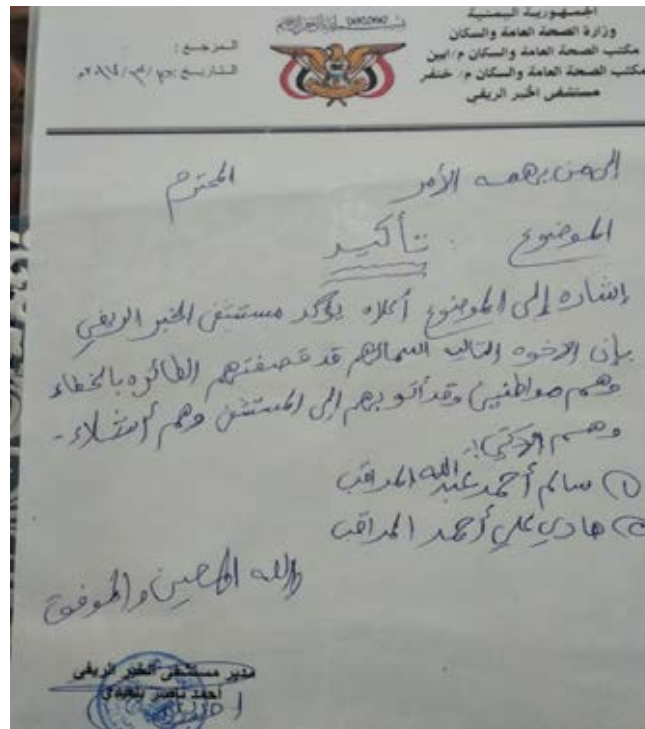 الجمهورية اليمنية
وزارة الصحة العامة والسكان
مكتب الصحة العامة والسكان م/ابين
مكتب الصحة العامة والسكان م/ خنفر
مستشفى الخبر الريفي
المرجع :
التاريخ :
إلى من يهمه الأمر المحترم
الموضوع . تأكيد
إشاره إلى الموضوع أعلاه يؤكد مستشفى الخبر الريفي
بإن الاخوه التاليه اسمائهم قد قصفتهم الطائره بالخطاء
وهم مواطنين وقد أتو بهم إلى المستشفى وهم أشلاء -
وهم الآتي :
١) سالم أحمد عبدالله المراقب
٢) هادي علي أحمد المراقب
والله المعين والموفق
مدير مستشفى الخبر الريفي
أحمد ناصر